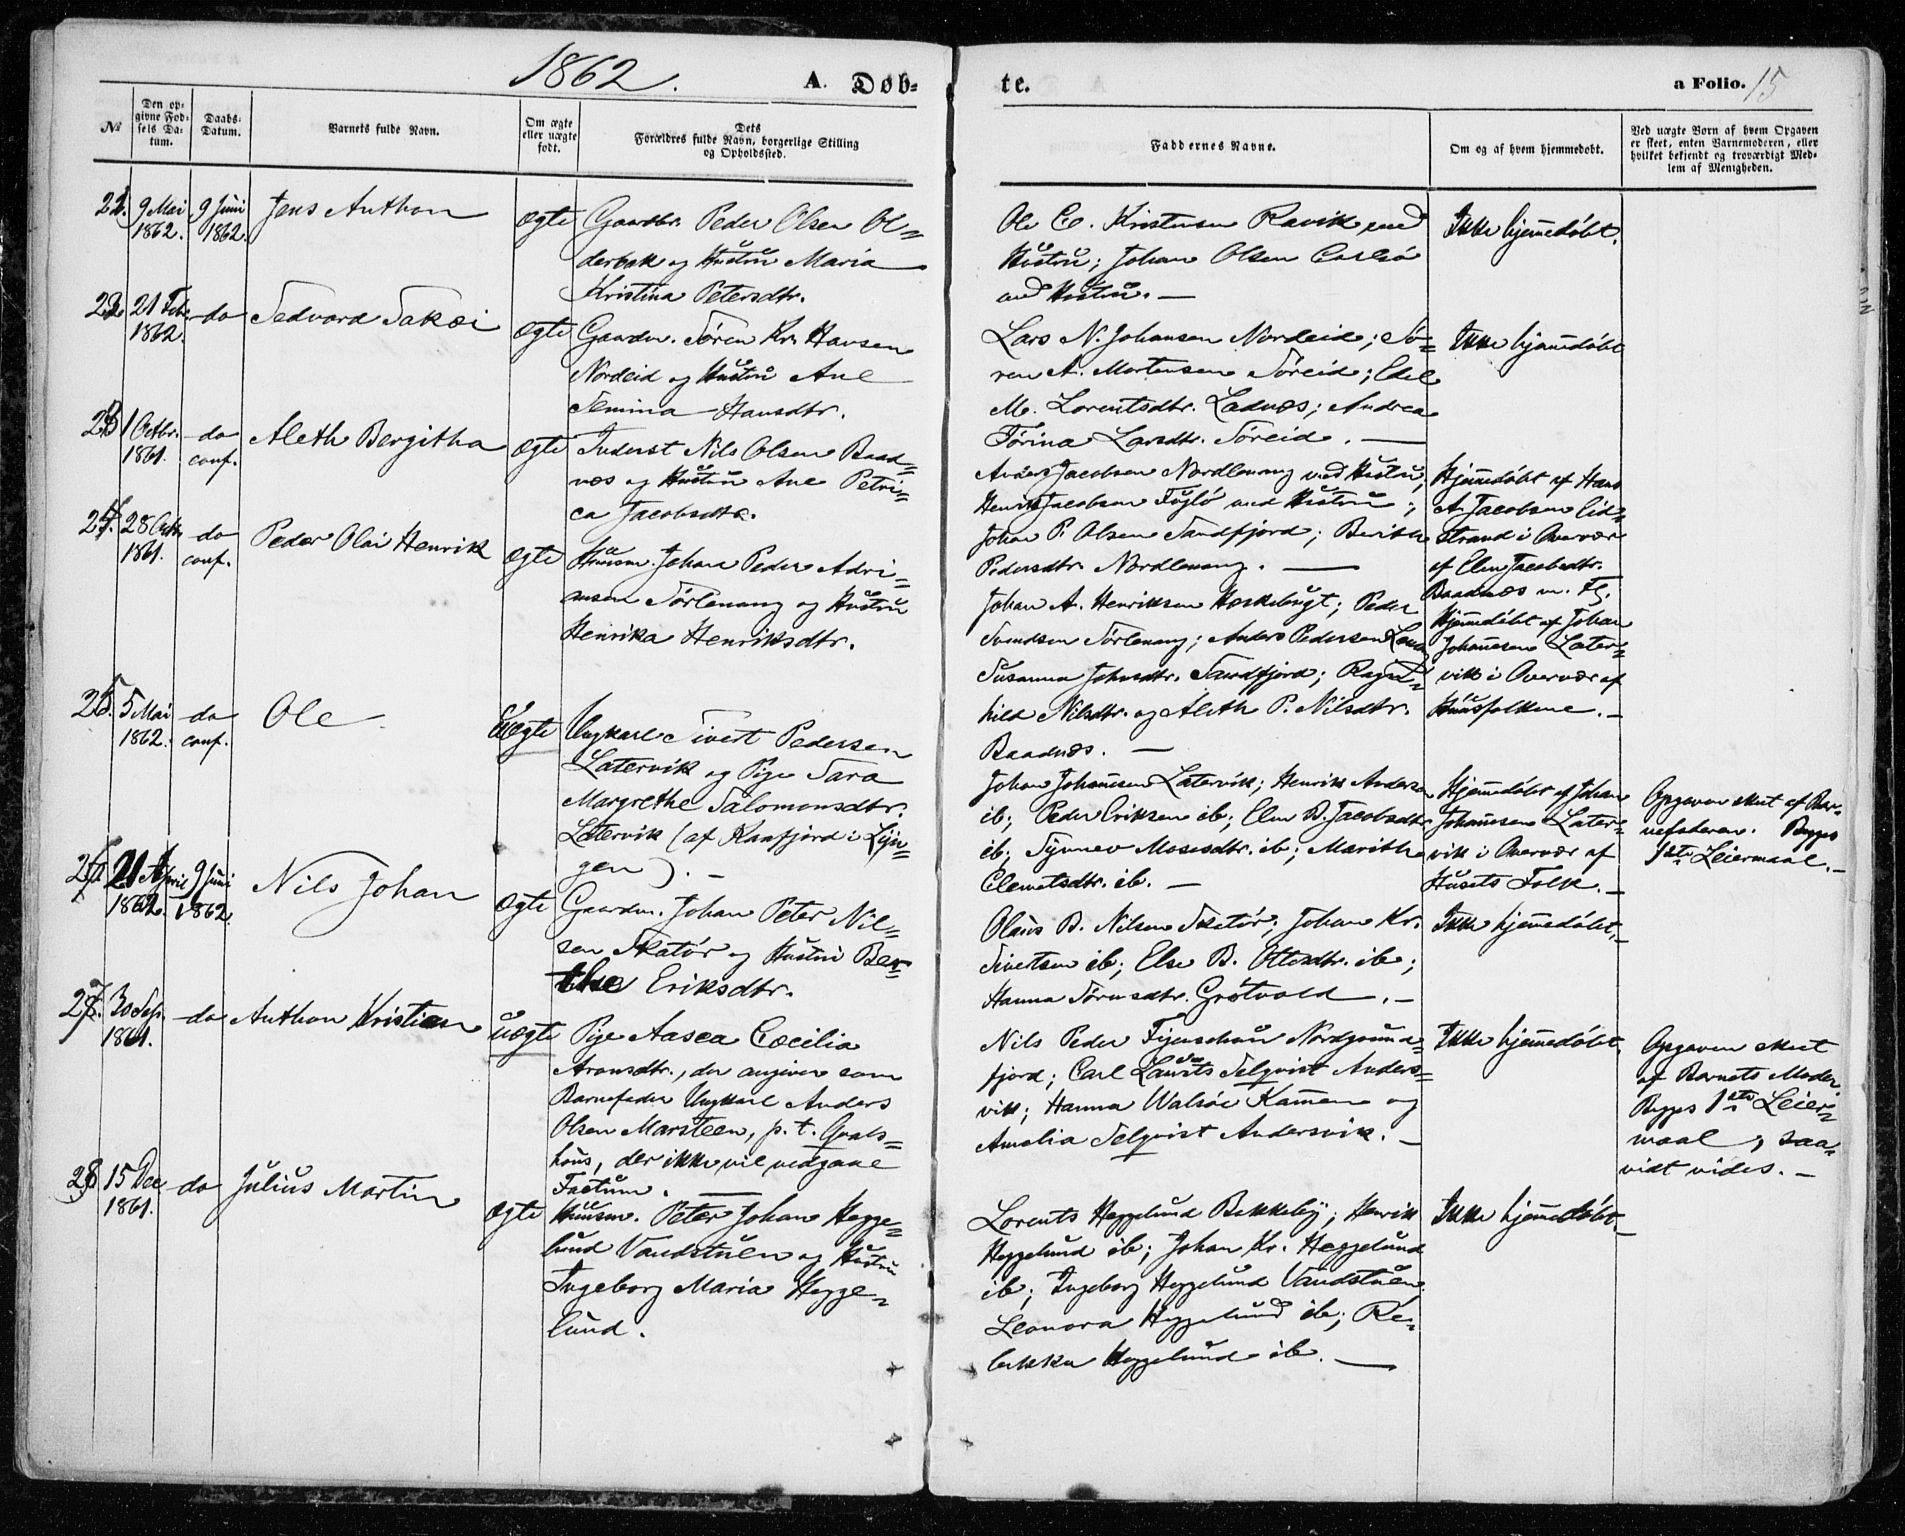 1862.
A. Døb-
te.
a Folio. 15
№
Den op-
givne Fød-
sels Da-
tum.
Daabs-
Datum.
Barnets fulde Navn.
Om ægte
eller uægte
født.
Dets
Forældres fulde Navn, borgerlige Stilling
og Opholdssted.
Faddernes Navne.
Om og af hvem hjemmedøbt.
Ved uægte Børn af hvem Opgaven
er skeet, enten Barnemoderen, eller
hvilket bekjendt og troværdigt Med-
lem af Menigheden.
9 Mai
1862.
9 Juni
1862.
Jens Anthon
Ægte
Gaardbr. Peder Olsen Ol-
derbak og Hustru Maria
Kristina Petersdtr.
Ole C. Kristensen Ravik med
Hustru; Johan Olsen Carlsö
med Hustru. —
Ikke hjem̄edøbt.
22
21 Febr.
1862.
do
Sedvard Sakæi
Ægte
Gaardm. Søren Kr. Hansen
Nordeid og Hustru Ane
Semina Hansdtr.
Lars N. Johansen Nordeid; Sø-
ren A. Mortensen Søreid; Edel
M. Lorentsdtr. Ladnæs; Andrea
Sørina Larsdtr. Søreid. —
Ikke hjem̄edøbt
23
1 Octbr.
1861.
do
conf.
Aleth Bergitha
Ægte
Inderst Nils Olsen Baad-
næs og Hustru Ane Petri-
ca Jacobsdtr.
Anders Jacobsen Nordlenang med Hustru,
Henrik Jacobsen Fuglö med Hustru;
Johan P. Olsen Sandfjord; Berith
Pedersdtr. Nordlenang. —
Hjem̄edøbt af Hans
A. Jacobsen Eid-
strand i Overvær
af Elen Jacobsdtr.
Baadnæs m. Fl.
24
28 Octbr
1861.
do
conf.
Peder Olai Henrik
Ægte
Huusm. Johan Peder Adri-
ansen Sørlenang og Hustru
Henrika Henriksdtr.
Johan A. Henriksen Hæskebugt; Peder
Svendsen Sørlenang; Anders Pedersen
Susanna Johnsdtr. Sandfjord; Ragn-
hild Nilsdtr. og Aleth P. Nilsdtr.
Baadnæs. —
Hjem̄edøbt af Johan
Johan̄esen Later-
vik i Overvær af
Huusfolkene. —
25.
5 Mai
1862.
do
conf.
Ole
Uægte
Ungkarl Sivert Pedersen
Latervik og Pige Sara
Margrethe Salomonsdtr.
Latervik (af Kaafjord i Lyn-
gen). —
Johan Johan̄esen Latervik; Henrik Andersen
ib; Peder Eriksen ib; Elen B. Jacobsdtr
ib; Synnev Mosesdtr. ib; Marith
Clemetsdtr. ib. —
Hjem̄edøbt af Johan
Johan̄esen Later-
vik i Overvær af
Husets Folk. —
Opgaven skeet af Bar-
nefaderen. Begges
1ste Leiermaal. —
26
21 April
1862.
9 Juni
1862.
Nils Johan
Ægte
Gaardm. Johan Peter Nil-
sen Skatør og Hustru Ber-
the Eriksdtr.
Olaus B. Nilsen Skatør; Johan Kr.
Sivertsen ib; Else B. Ottesdtr. ib;
Hanna Sørensdtr. Grøtvold. —
Ikke hjem̄edøbt. —
27.
30 Sep.
1861.
do
Anthon Kristian
uægte
Pige Aasea Cæcilia
Aronsdtr., der angiver som
Barnefader Ungkarl Anders
Olsen Marsteen, p. t. Gvals-
haus, der ikke vil vedgaae
Factum. —
Nils Peder Figenschau Nordgrund-
fjord; Carl Laurits Selqvist Anders-
vik; Hanna Walsöe Kamen og
Amalia Selqvist Andersvik. —
Ikke hjem̄edøbt.
Opgaven skeet
af Barnets Moder
Begges 1ste Leier-
maal, saa-
vidt vides. —
28
15 Dec
1861.
do
Julius Martin
Ægte
Huusm. Peter Johan Hegge-
lund Vandstuen og Hustru
Ingeborg Maria Hegge-
lund.
Lorents Heggelund Bekkeby; Henrik
Heggelund ib; Johan Kr. Heggelund
ib; Ingeborg Heggelund Vandstuen;
Leonora Heggelund ib; Re-
bekka Heggelund ib. —
Ikke hjem̄edøbt. —